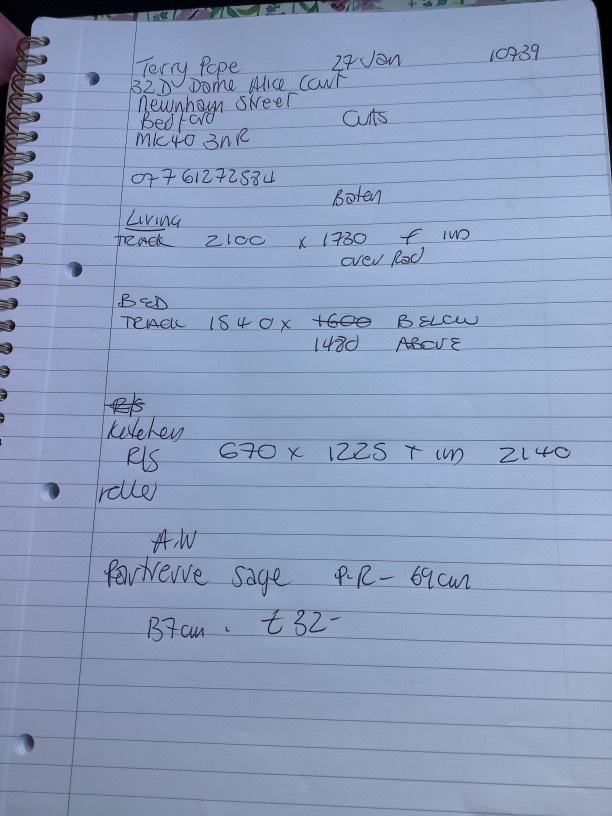 Terry Pope 27 Jan 10739
32D Dome Alice Court
Newnham Street
Bedford
Cuts
MK40 3NR
07761272584
Living
Track 2100 x 1730 f
over Rod
BED
TRACK 1540 x ~~1600~~ BELOW
1480 ABOVE
~~R/S~~
Kitchen
R/S 670 x 1225 + 2140
roller
A.W
sage P-R - 69cm
B7cm .